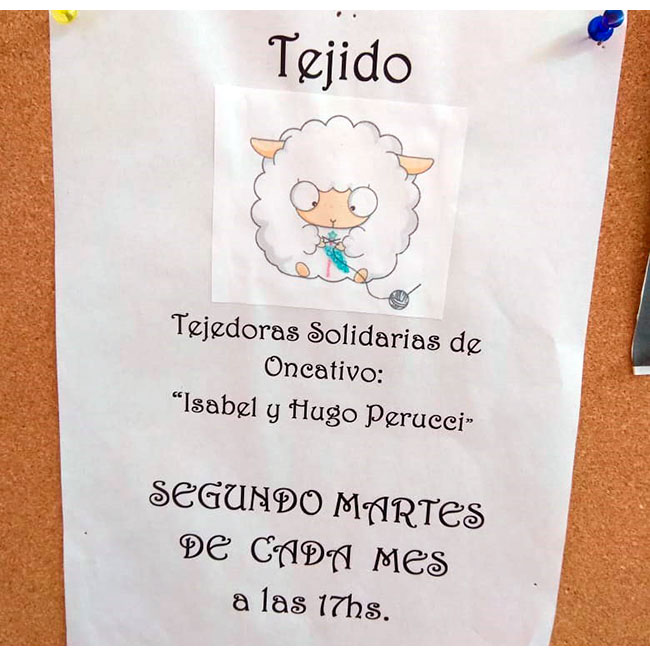 Tejido
Tejedoras Solidarias de
Oncativo:
“Isabel y Hugo Perucci”
SEGUNDO MARTES
DE CADA MES
a las 17hs.